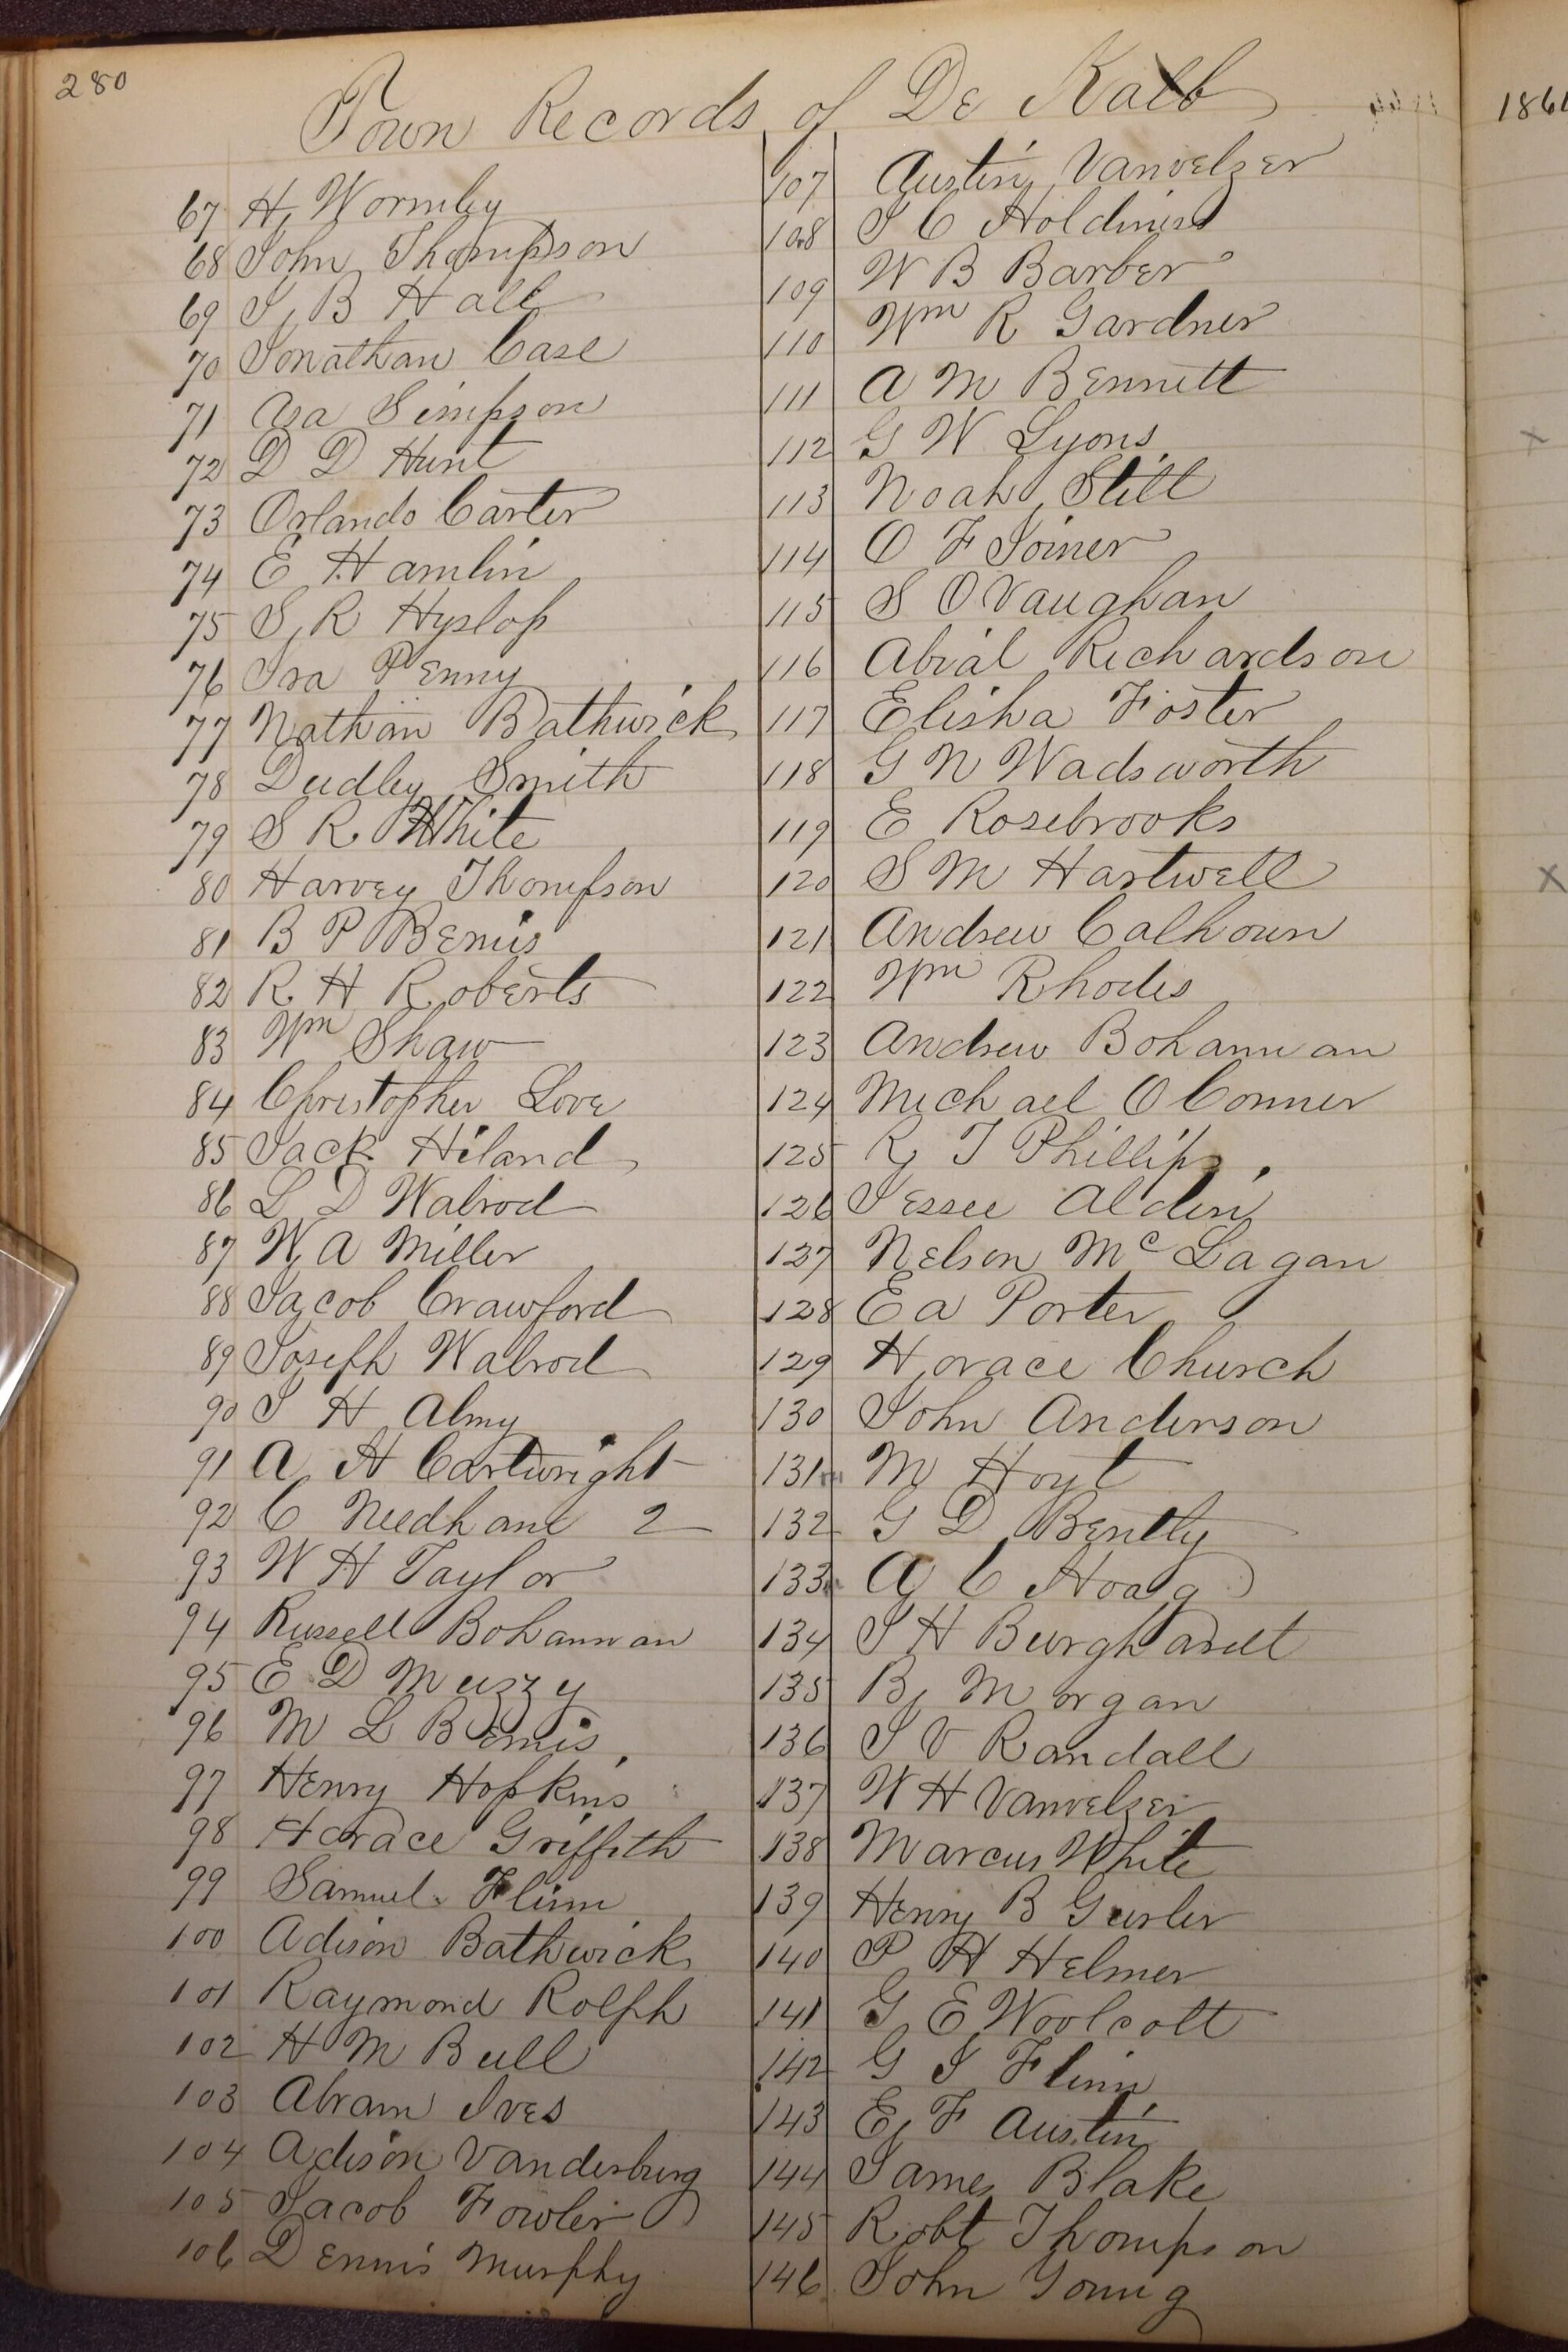 280
Town Records of De Kalb
67 H Wormley
68 John Thompson
69 J B Hall
70 Jonathan Case
71 Asa Simpson
72 D D Hunt
73 Orlando Carter
74 E Hamlin
75 S R Hyslop
76 Ira Penny
77 Nathan Bathwick
78 Dudley Smith
79 S R White
80 Harvey Thompson
81 B P Bemis
82 R H Roberts
83 Wm Shaw
84 Christopher Love
85 Jack Hiland
86 L D Walrod
87 W A Miller
88 Jacob Crawford
89 Joseph Walrod
90 J H Almy
91 A H Cartwright
92 C Needham 2
93 W H Taylor
94 Russell Bohannan
95 E D Muzzy
96 M L Bemis
97 Henry Hopkins
98 Horace Griffith
99 Samuel Flinn
100 Adison Bathwick
101 Raymond Rolph
102 H M Bull
103 Abram Ives
104 Adison Vanderburg
105 Jacob Fowler
106 Dennis Murphy
107 Austin Vanvelzer
108 S C Holdiness
109 W B Barber
110 Wm R Gardner
111 A M Bennett
112 G W Lyons
113 Noah Still
114 O F Joiner
115 S O Vaughan
116 Abial Richardson
117 Elisha Foster
118 G N Wadsworth
119 E Rosebrooks
120 S M Hartwell
121 Andrew Calhoun
122 Wm Rhodes
123 Andrew Bohannan
124 Michael O Conner
125 R T Phillips
126 Jessee Alden
127 Nelson Mc Lagan
128 E A Porter
129 Horace Church
130 John Anderson
131 M Hoyt
132 G D Bently
133 A C Hoag
134 J H Burghardt
135 B Morgan
136 J V Randall
137 W H Vanvelzer
138 Marcus White
139 Henry B Gurler
140 P H Helmer
141 G E Woolcott
142 G J Flinn
143 E F Austin
144 James Blake
145 Robt Thompson
146 John Young